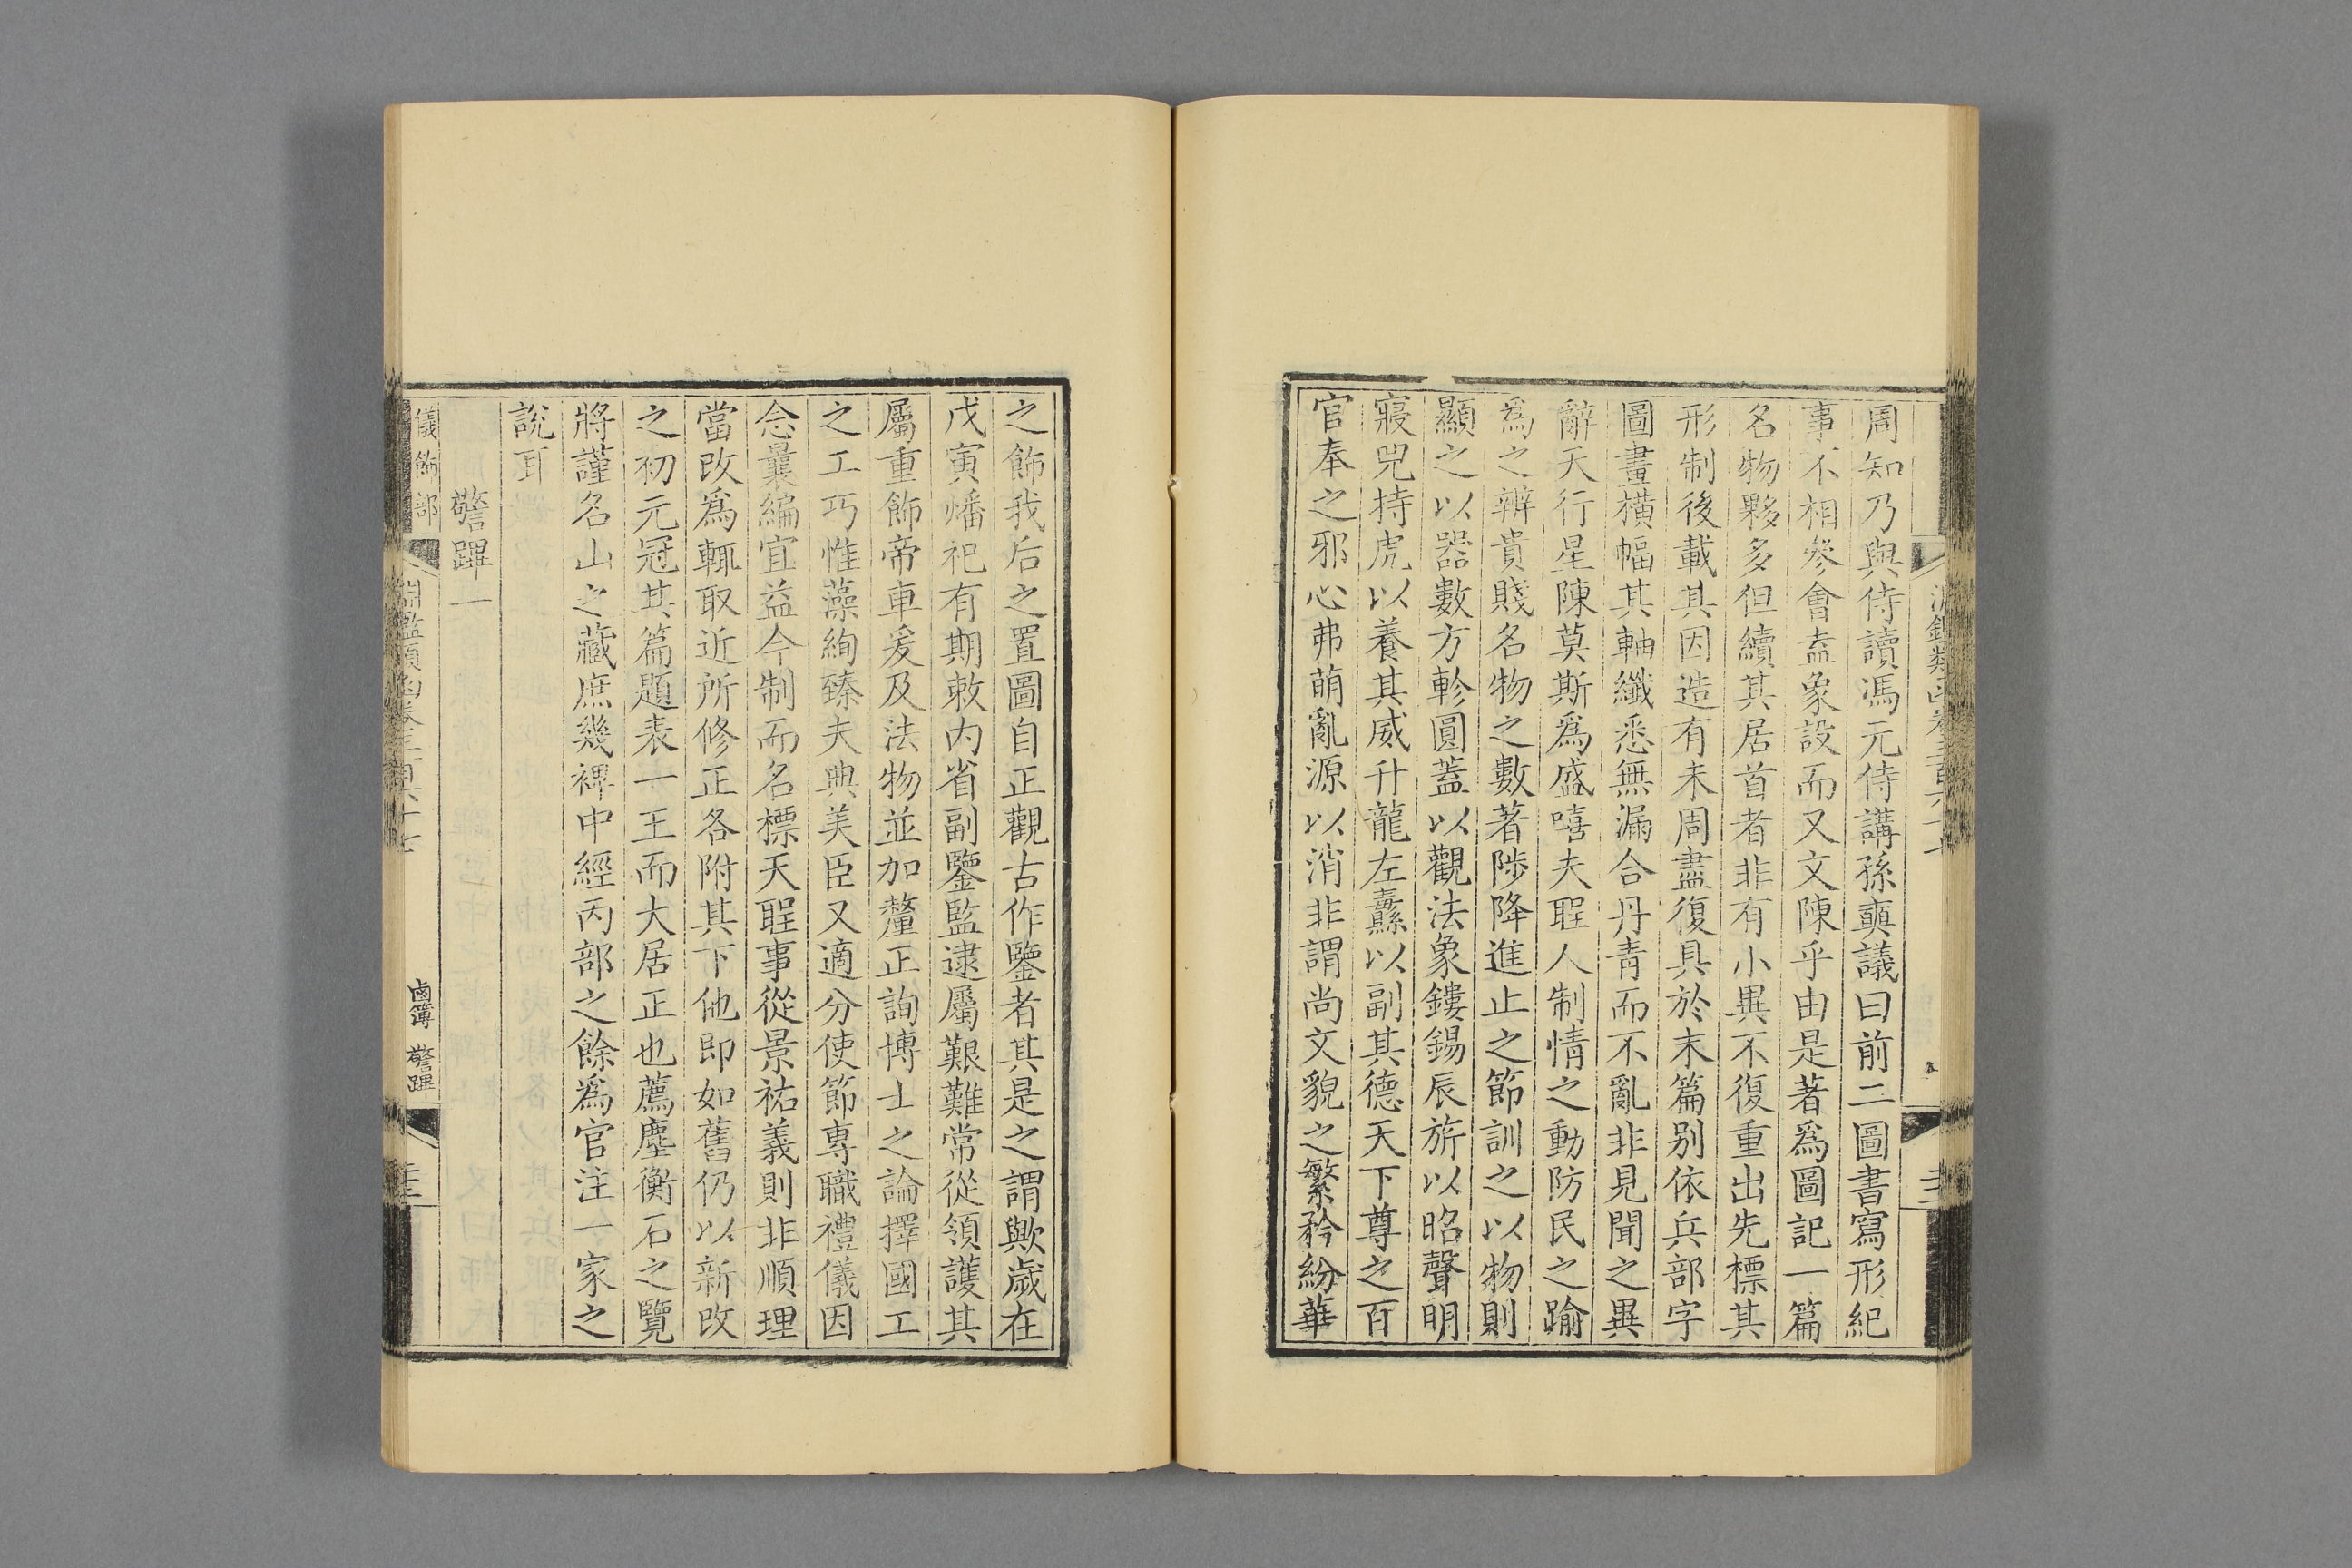 周知乃與侍讀馮元侍講孫奭議曰前二圖書寫形紀
事不相參會盍象設而又文陳乎由是著爲圖記一篇
名物夥多但續其居首者非有小異不復重出先標其
形制後載其因造有未周盡復具於末篇别依兵部字
圖畫橫幅其軸纖悉無漏合丹青而不亂非見聞之異
辭天行星陳莫斯爲盛嘻夫聖人制情之動防民之踰
爲之辨貴賤名物之數著陟降進止之節訓之以物則
顯之以器數方軫圓蓋以觀法象鏤錫辰旂以昭聲明
寢兕持虎以養其威升龍左纛以副其德天下尊之百
官奉之邪心弗萌亂源以消非謂尚文貌之繁矜紛華
之飾我后之置圖自正觀古作鑒者其是之謂歟歲在
戊寅燔祀有期敕内省副鑒監逮屬艱難常從領護其
屬重飾帝車爰及法物並加釐正詢博士之論擇國工
之工巧惟藻絢臻夫典美臣又適分使節專職禮儀因
念曩編宜益今制而名標天聖事從景祐義則非順理
當改爲輒取近所修正各附其下他即如舊仍以新改
之初元冠其篇題表一王而大居正也薦塵衡石之覽
將謹名山之藏庶幾裨中經丙部之餘爲官注一家之
說耳
警蹕一
儀飾部
淵鑑類函卷三百六十七
鹵簿 警蹕